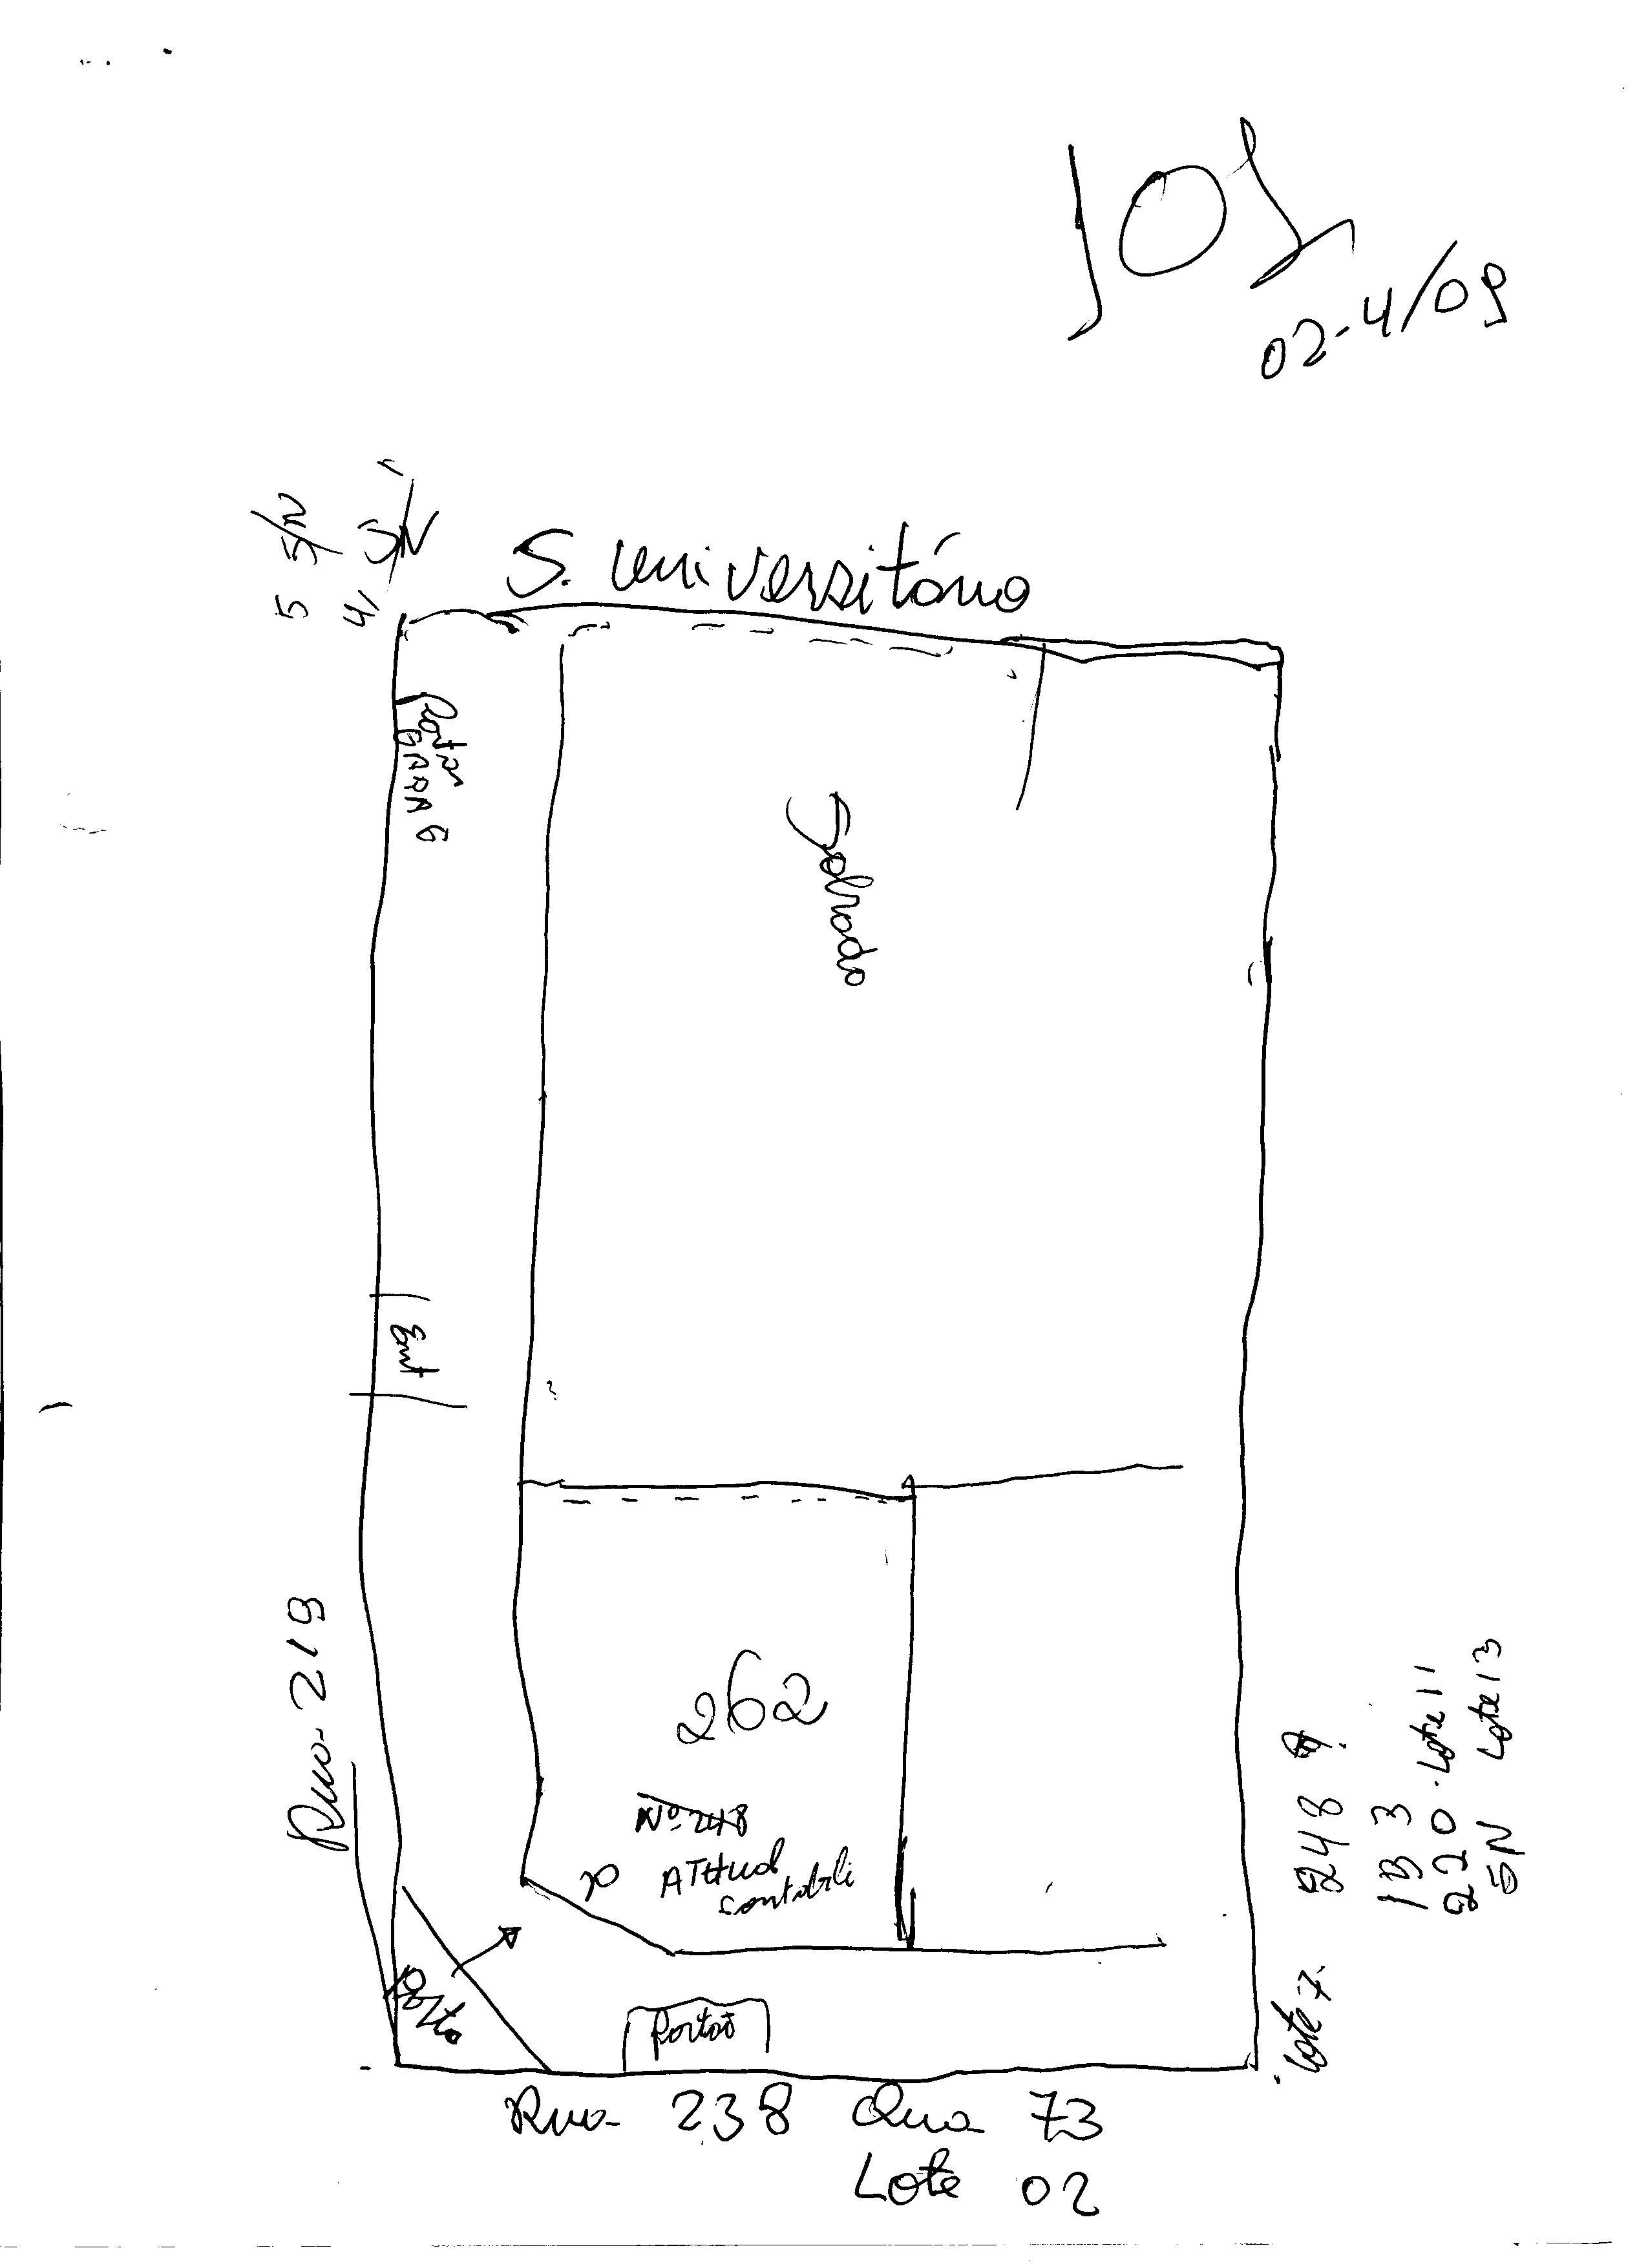 02-4/09
5 S/N
4, S/N
S. Universitário
Portão
Sobrado
Ent
Rua-219
262
Nº 248
ATHud
contabili
Portão
Rua 238 Qua 73
Lote 02
Lote 7. 248
183
220. Lote 11
SN Lote 13